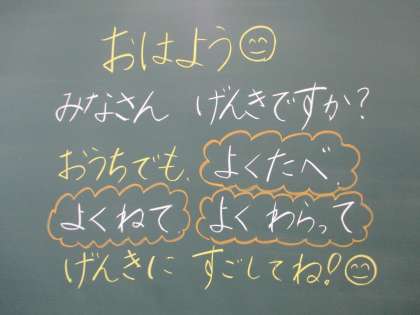 おはよう
みなさん げんきですか?
おうちでも、よくたべ、
よくねて、よくわらって
げんきに すごしてね!